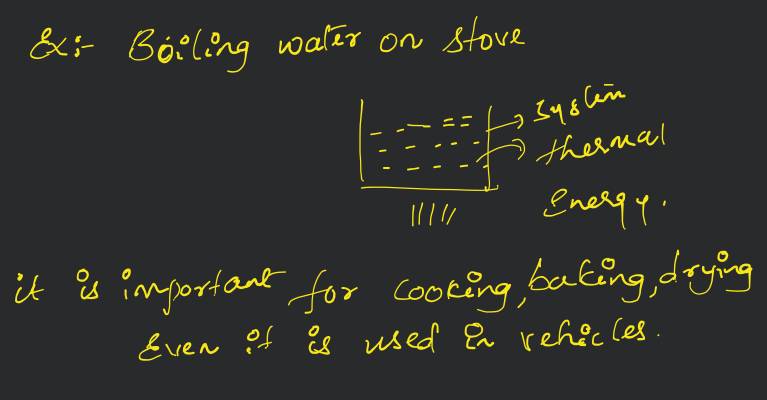 Ex:- Boiling water on stove
System
thermal
Energy.
it is important for cooking, baking, drying
Even it is used in vehicles.